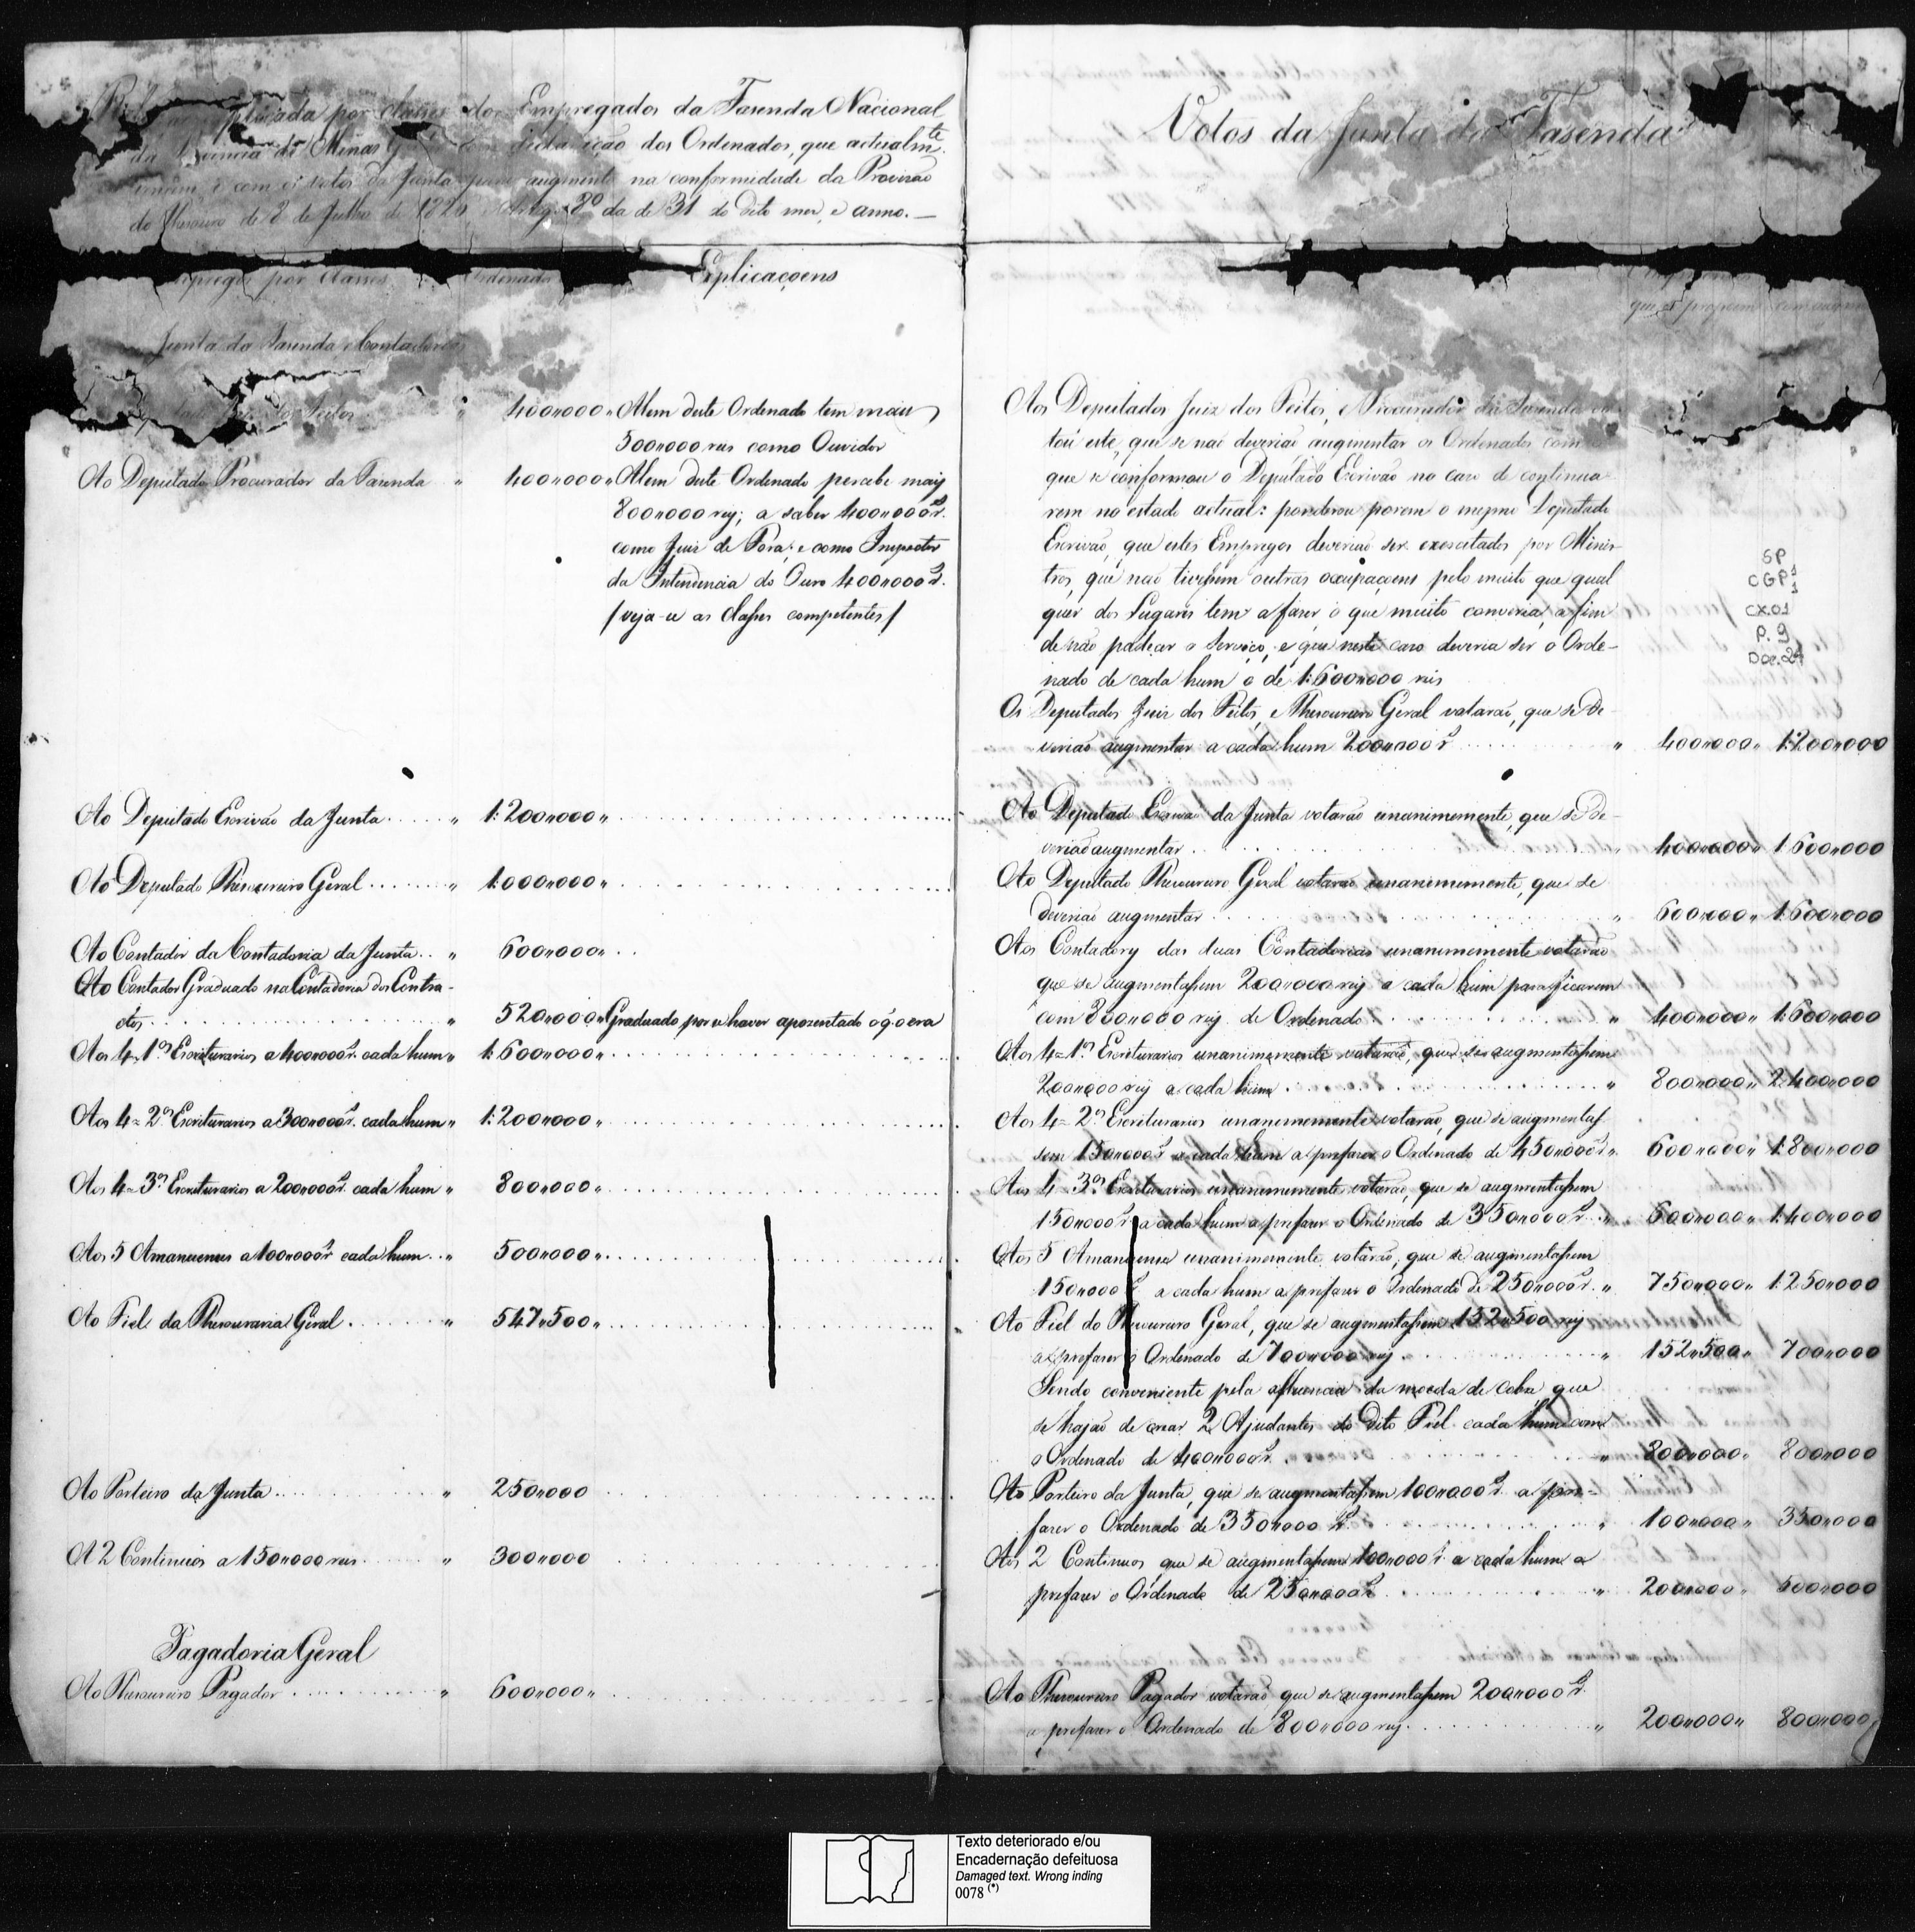 plicada por classes dos Empregados da Fasenda Nacional
da Provincia de Minas G declaração dos Ordenados, que actualm.te
e com os Votos da Junta para augmento na conformidade da Provisão
do Thesouro de 8 de Julho de 182 Artigo 8º da de 31 do dito mez, e anno.—
Empregos por Classes Ordenados Explicaçoens
Junta da Fasenda e Contadorias
dos Feitos " 400"000" Alem deste Ordenado tem mais
500"000 reis como Ouvidor
Ao Deputado Procurador da Fasenda " 400"000" Alem deste Ordenado percebe mais
800"000 reis; a saber 400"000 r.s
como Juiz de Fora; e como Inspector
da Intendencia do Ouro 400"000 r.s
/veja-se as Classes competentes/
Ao Deputado Escrivão da Junta " 1:200"000"
Ao Deputado Thesoureiro Geral " 1:000"000"
Ao Contador da Contadoria da Junta " 600"000"
Ao Contador Graduado na Contadoria dos Contra-
ctos " 520"000" Graduado por se haver apozentado o q̃ o era
Aos 4=1.os Escriturarios a 400"000 r.s cada hum " 1:600"000"
Aos 4=2.os Escriturarios a 300"000 r.s cada hum " 1:200"000"
Aos 4=3.os Escriturarios a 200"000 r.s cada hum " 800"000"
Aos 5 Amanuenses a 100"000 r.s cada hum " 500"000"
Ao Fiel da Thesouraria Geral " 547"500"
Ao Porteiro da Junta " 250"000
A 2 Continuos a 150"000 reis " 300"000
Pagadoria Geral
Ao Thesoureiro Pagador " 600"000"
Votos da Junta da Fasenda
que se propoem com augm
Aos Deputados Juiz dos Feitos, e Procurador da Fasenda vo-
tou este, que se não deverião augmentar os Ordenados com
que se conformou o Deputado Escrivão no caso de continua-
rem no estado actual: ponderou porem o mesmo Deputado
Escrivão, que estes Empregos deverião ser exercitados por Minis-
tros, que não tivessem outras occupaçoens pelo muito que qual
quer dos Lugares tem a fazer, o que muito convéria, a fim
de não padeçar o Serviço, e que neste caso deveria ser o Orde-
nado de cada hum o de 1:600"000 reis
SP
CGP 1
1
CX.01
P. 9
Doc. 24
Os Deputados Juiz dos Feitos, e Thesoureiro Geral votarão, que se de-
verião augmentar a cada hum 200"000 r.s " 400"000" 1:200"000
Ao Deputado Escrivão da Junta votarão unanimemente, que se de-
verião augmentar " 400"000" 1:600"000
Ao Deputado Thesoureiro Geral votarão unanimemente, que se
deverião augmentar " 600"000" 1:600"000
Aos Contadores das duas Contadorias unanimemente votarão
que se augmentassem 200"000 reis a cada hum para ficarem
com 800"000 reis de Ordenado " 400"000" 1:600"000
Aos 4=1.os Escriturarios unanimemente votarão, que se augmentassem
200"000 reis a cada hum " 800"000" 2:400"000
Aos 4=2.os Escriturarios unanimemente votarão, que se augmentas-
sem 150"000 r.s a cada hum a prefazer o Ordenado de 450"000 r.s " 600"000" 1:800"000
Aos 4=3.os Escriturarios unanimemente votarão, que se augmentassem
150"000 r.s a cada hum a prefazer o Ordenado de 350"000 r.s " 600"000" 1:400"000
Aos 5 Amanuenses unanimemente votarão, que se augmentassem
150"000 r.s a cada hum a prefazer o Ordenado de 250"000 r.s " 750"000" 1:250"000
Ao Fiel do Thesoureiro Geral, que se augmentassem 152"500 reis
a prefazer o Ordenado de 700"000 reis " 152"500" 700"000
Sendo conveniente pela affluencia da moeda de Cobre que
se hajão de crear 2 Ajudantes do dito Fiel cada hum com
o Ordenado de 400"000 r.s " 800"000" 800"000
Ao Porteiro da Junta, que se augmentassem 100"000 r.s a pre-
fazer o Ordenado de 350"000 r.s " 100"000" 350"000
Aos 2 Continuos, que se augmentassem 100"000 r.s a cada hum a
prefazer o Ordenado de 250"000 r.s " 200"000" 500"000
Ao Thesoureiro Pagador votarão que se augmentassem 200"000 r.s
a prefazer o Ordenado de 800"000 reis " 200"000" 800"000
Texto deteriorado e/ou
Encadernação defeituosa
Damaged text. Wrong inding
0078 (*)